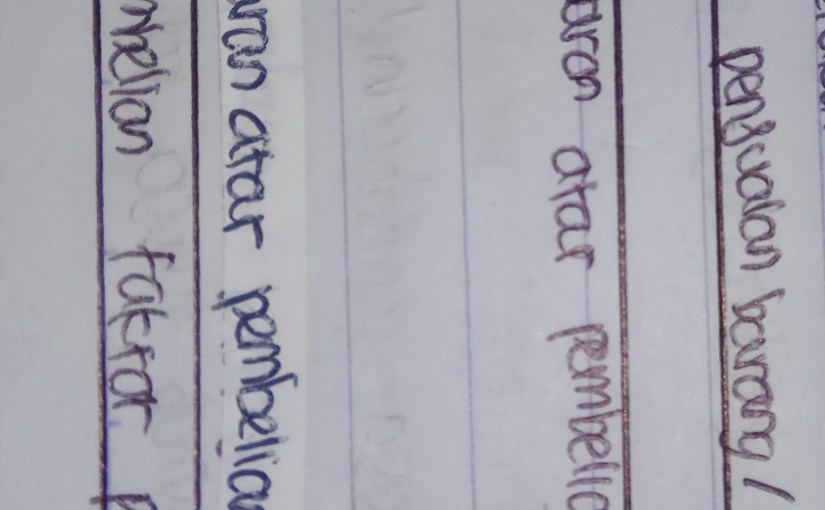 penjualan barang /
aran atar pembelia
aran atar pembelia
mbelian faktor p